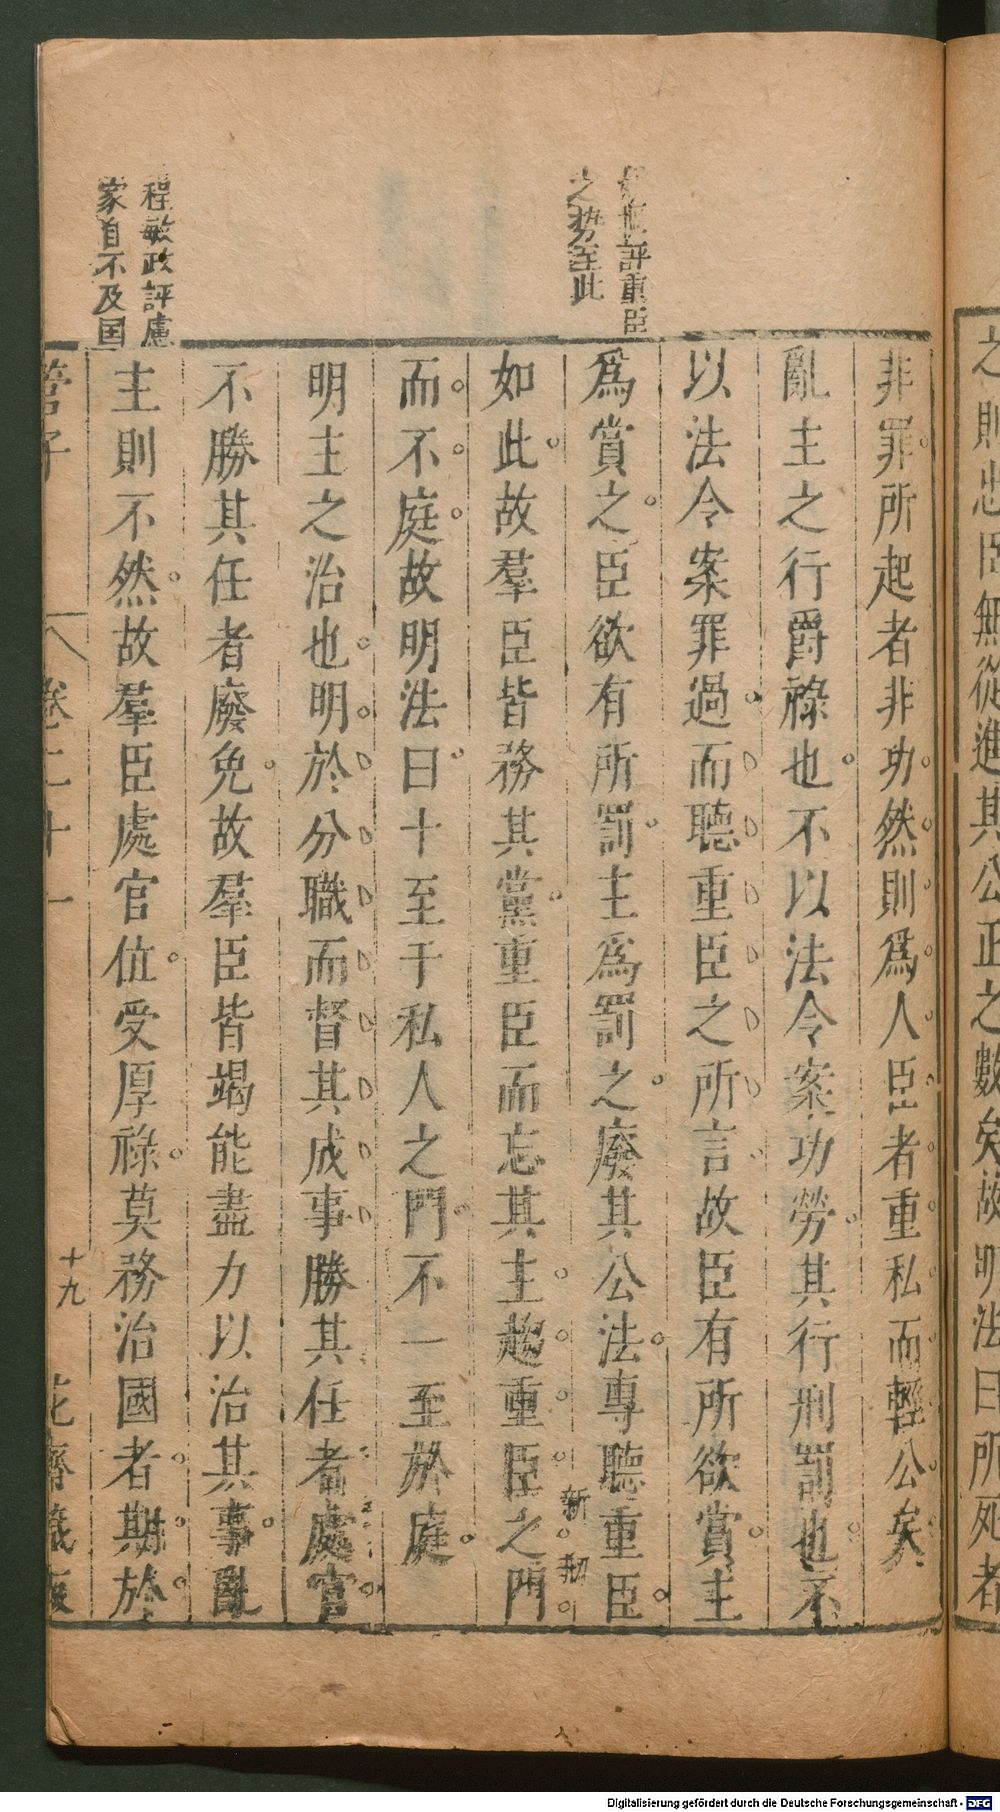 之則忠臣無從進其公正之數矣故明法曰所死者
非罪所起者非功然則爲人臣者重私而輕公矣
亂主之行爵祿也不以法令案功勞其行刑罰也不
以法令案罪過而聽重臣之所言故臣有所欲賞主
爲賞之臣欲有所罰主爲罰之廢其公法專聽重臣
如此故羣臣皆務其黨重臣而忘其主趨重臣之門
而不庭故明法曰十至于私人之門不一至於庭
明主之治也明於分職而督其成事勝其任者處官
不勝其任者廢免故羣臣皆竭能盡力以治其事亂
主則不然故羣臣處官位受厚祿莫務治國者期於
評重臣
之势至此
程敏政評慮
家自不及国
新
管子
卷二十一
十九
花齋藏板
Digitalisierung gefördert durch die Deutsche Forschungsgemeinschaft - DFG